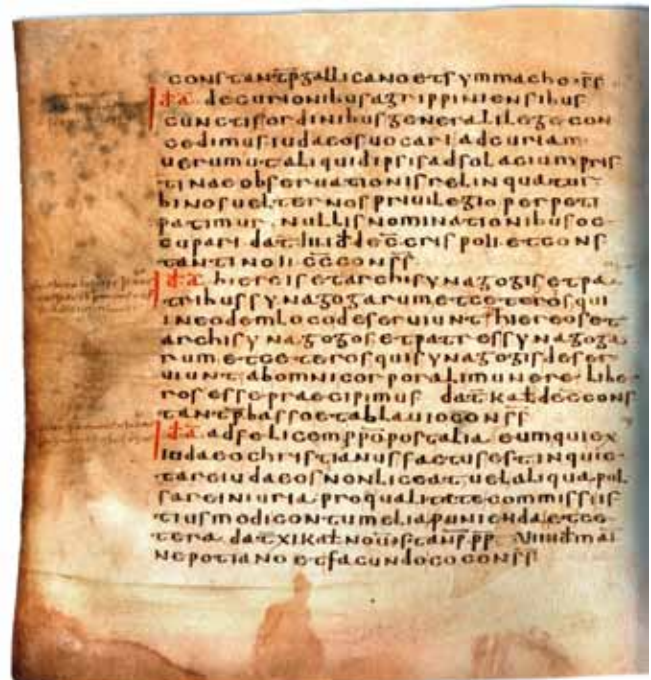 constantp gallicano et symmacho ss
Ida decurionibus agrippiniensibus
cunctis ordinibus generali lege con
cedimus iudaeos uocari ad curiam
uerum ut aliquid ipsis ad solacium pris
tinae obseruationis relinquatur
binos uel ternos priuilegio perpeti
patimur nullis nominationibus oc
cupari dat iii id dec crispo ii et cons
tantino ii cc conss
Ida hiereis et archisynagogis et pa
tribus synagogarum et ceteros qui
in eodem loco deseruiunt hiereos et
archisynagogos et patres synagoga
rum et ceteros qui synagogis deser
uiunt ab omni corporali munere libe
ros esse praecipimus dat kal dec cons
tantp basso et ablauio conss
Ida ad felicem ppo post alia eum qui ex
iudaeo christianus factus est inquie
tare iudaeos non liceat uel aliqua pul
sare iniuria pro qualitate commissi is
tius modi contumelia punienda et ce
tera dat xi kal nou constanp pp viiii id mai
nepotiano et facundo co conss